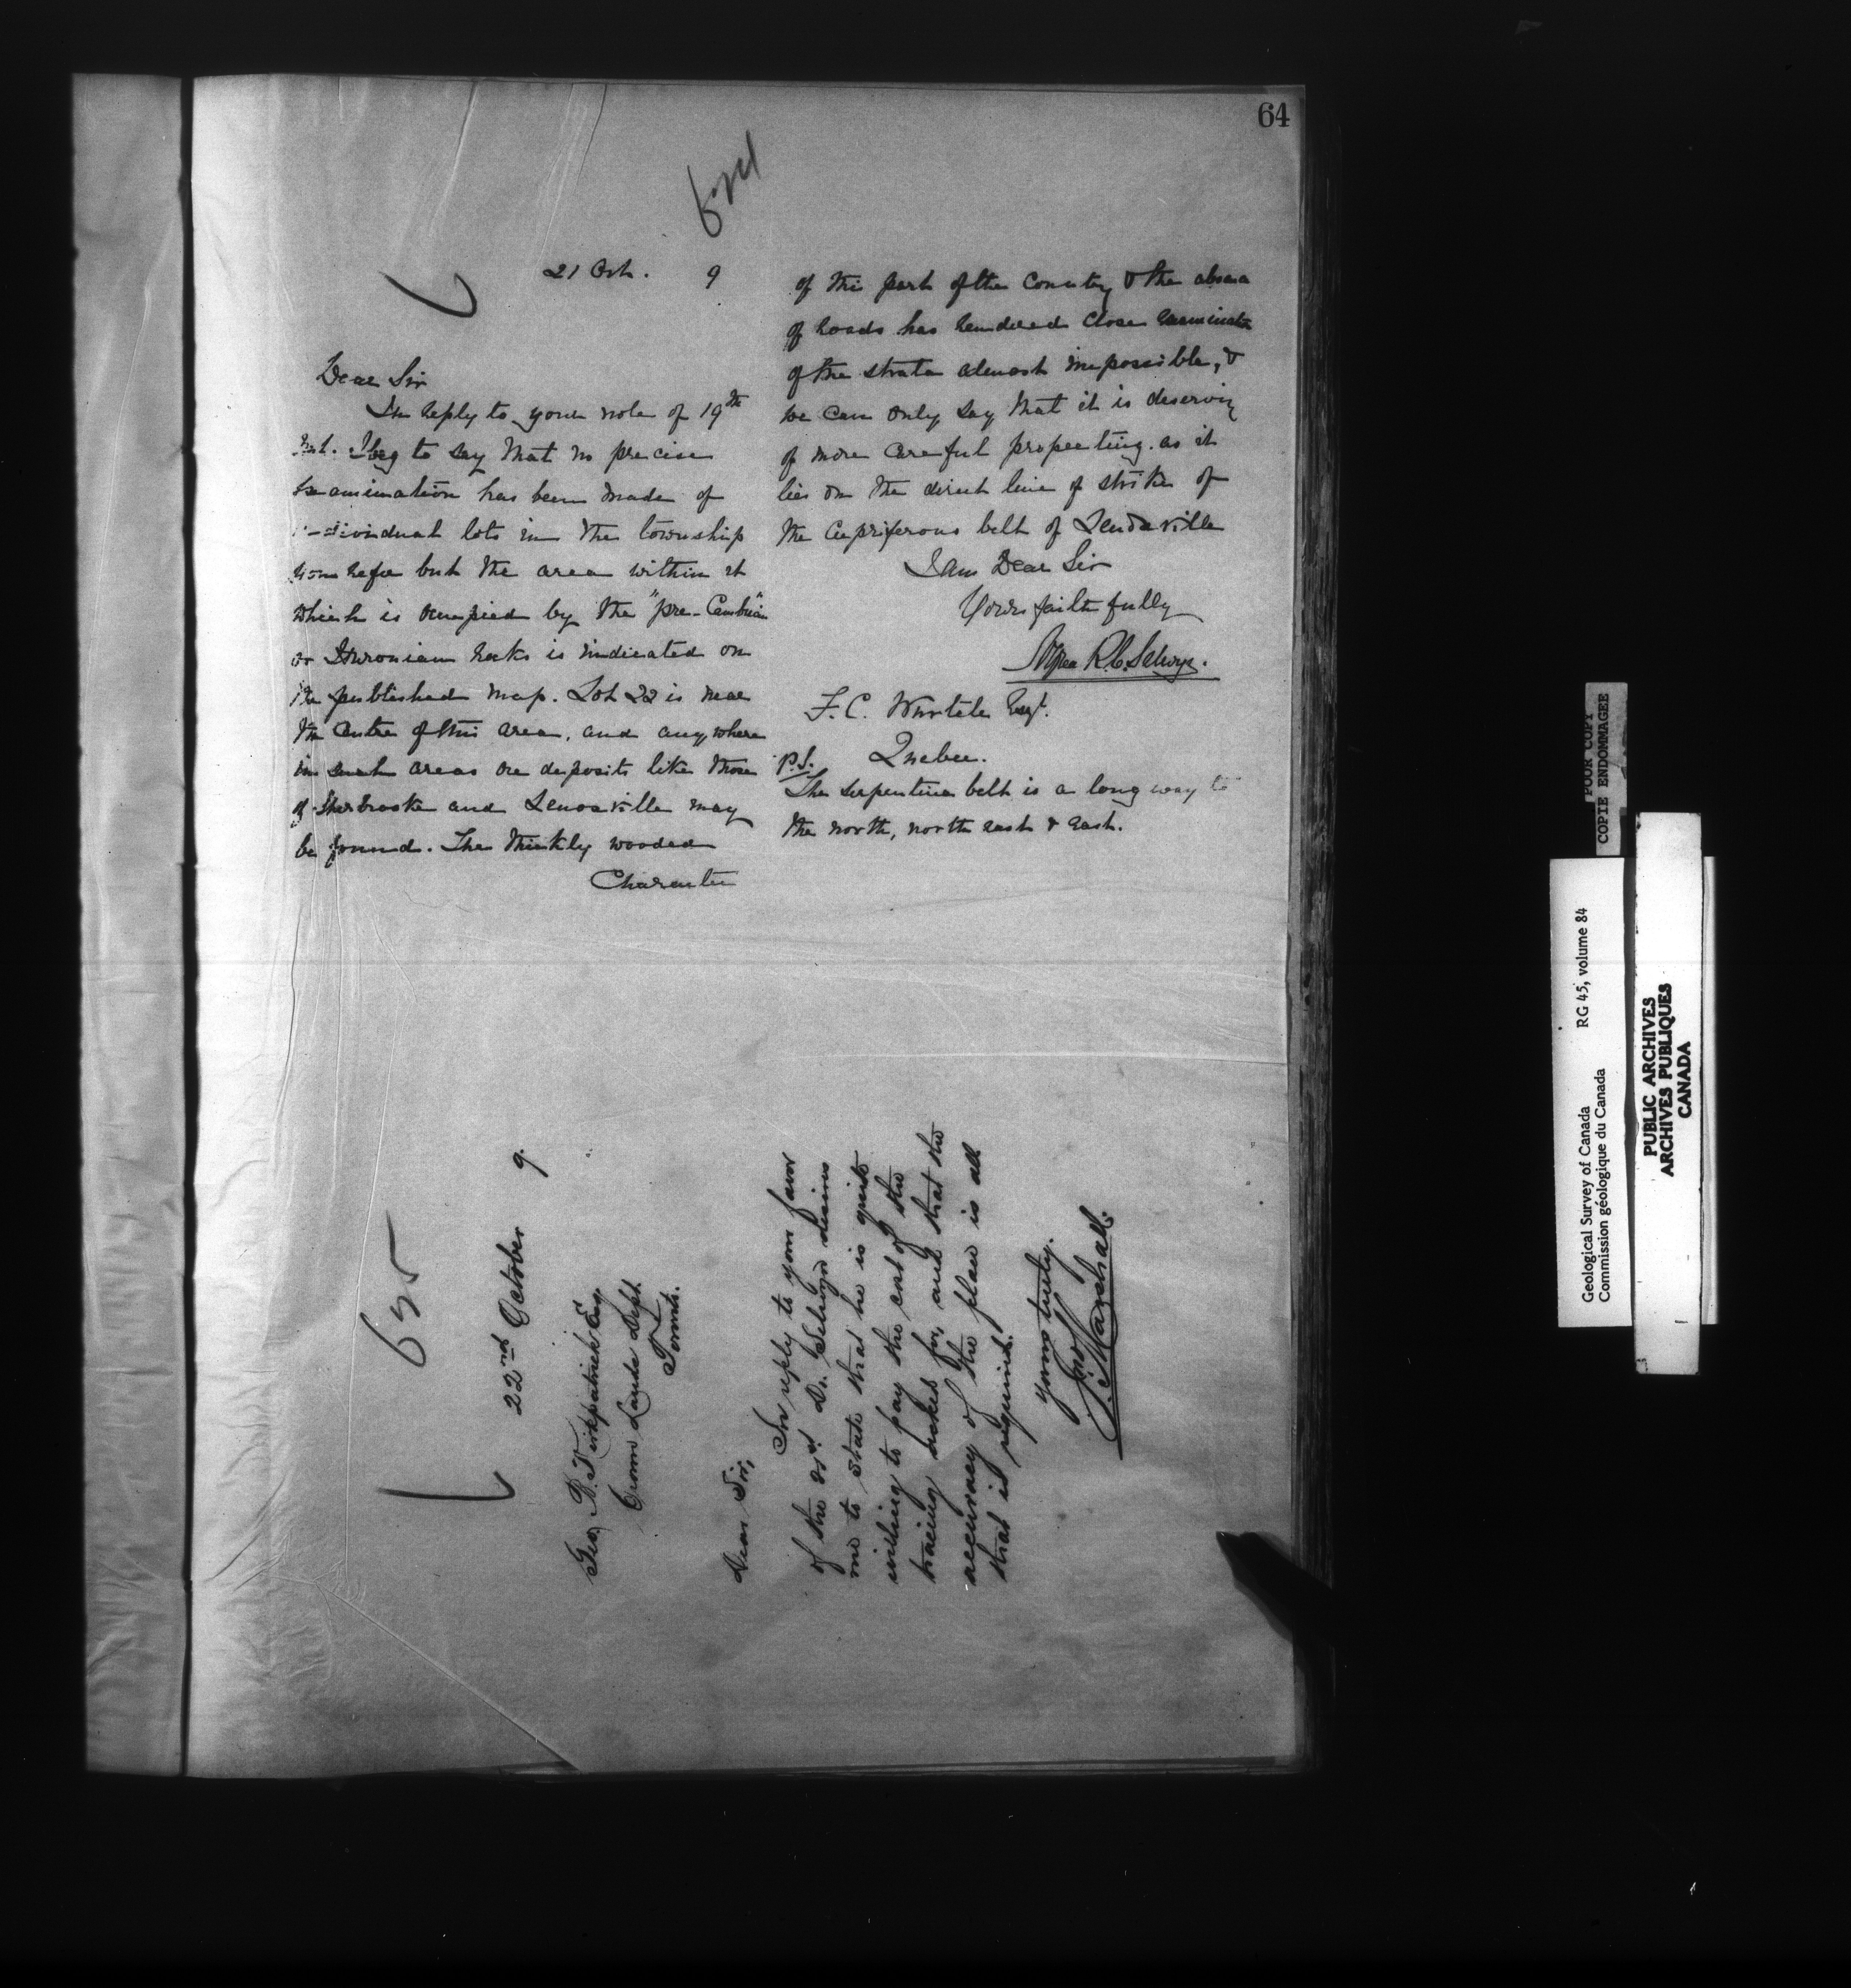 64
624
21 Oct. 9
Dear Sir
In reply to your note of 19th
Inst. I beg to say that no precise
examination has been made of
individual lots in the township
you refer but the area within it
which is occupied by the "pre-Cambrian"
or Huronian rocks is indicated on
the published map. Lot 22 is near
the centre of this area, and anywhere
in such areas ore deposits like those
of Sherbrooke and Lenoxville may
be found. The thickly wooded
Character
of this part of the country & the absence
of roads has rendered close examination
of the strata almost impossible, &
we can only say that it is deserving
of more careful propecting. as it
lies on the direct line of strike of
the Cupriferous belt of Lenoxville
I am Dear Sir
Yours faithfully
Alfred R.C. Selwyn.
F. C. Wurtele Esqr.
Quebec.
P.S.
The serpentine belt is a long way to
the north, north east & east.
625
22nd October 9.
Geo. B. Kirkpatrick Esq.
Crown Lands Dept.
Toronto.
Dear Sir,
In reply to your favor
of the 21st Dr. Selwyn desires
me to state that he is quite
willing to pay the cost of the
tracing asked for, and that the
accuracy of the plan is all
that is required.
Yours truly.
Jno. Marshall.
POOR COPY
COPIE ENDOMMAGEE
Geological Survey of Canada RG 45, volume 84
Commission géologique du Canada
PUBLIC ARCHIVES
ARCHIVES PUBLIQUES
CANADA